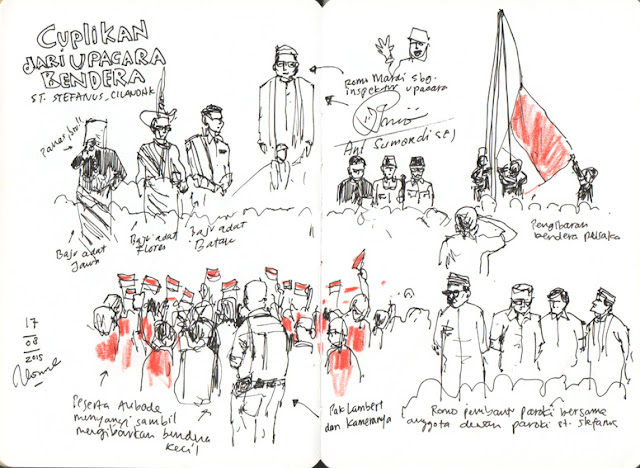 CUPLIKAN
DARI UPACARA
BENDERA
ST. STEFANUS, CILANDAK
Panas, bro!!
Baju adat
Jawa
Baju adat
Flores
Baju adat
Batak
Romo Mardi sbg.
inspektur upacara
Ant. Sumardi SCJ
Pengibaran
bendera pusaka
17
08
2015
Peserta Aubade
menyanyi sambil
mengibarkan bendera
kecil
Pak Lambert
dan kameranya
Romo pembantu paroki bersama
anggota dewan paroki St. Stefanus